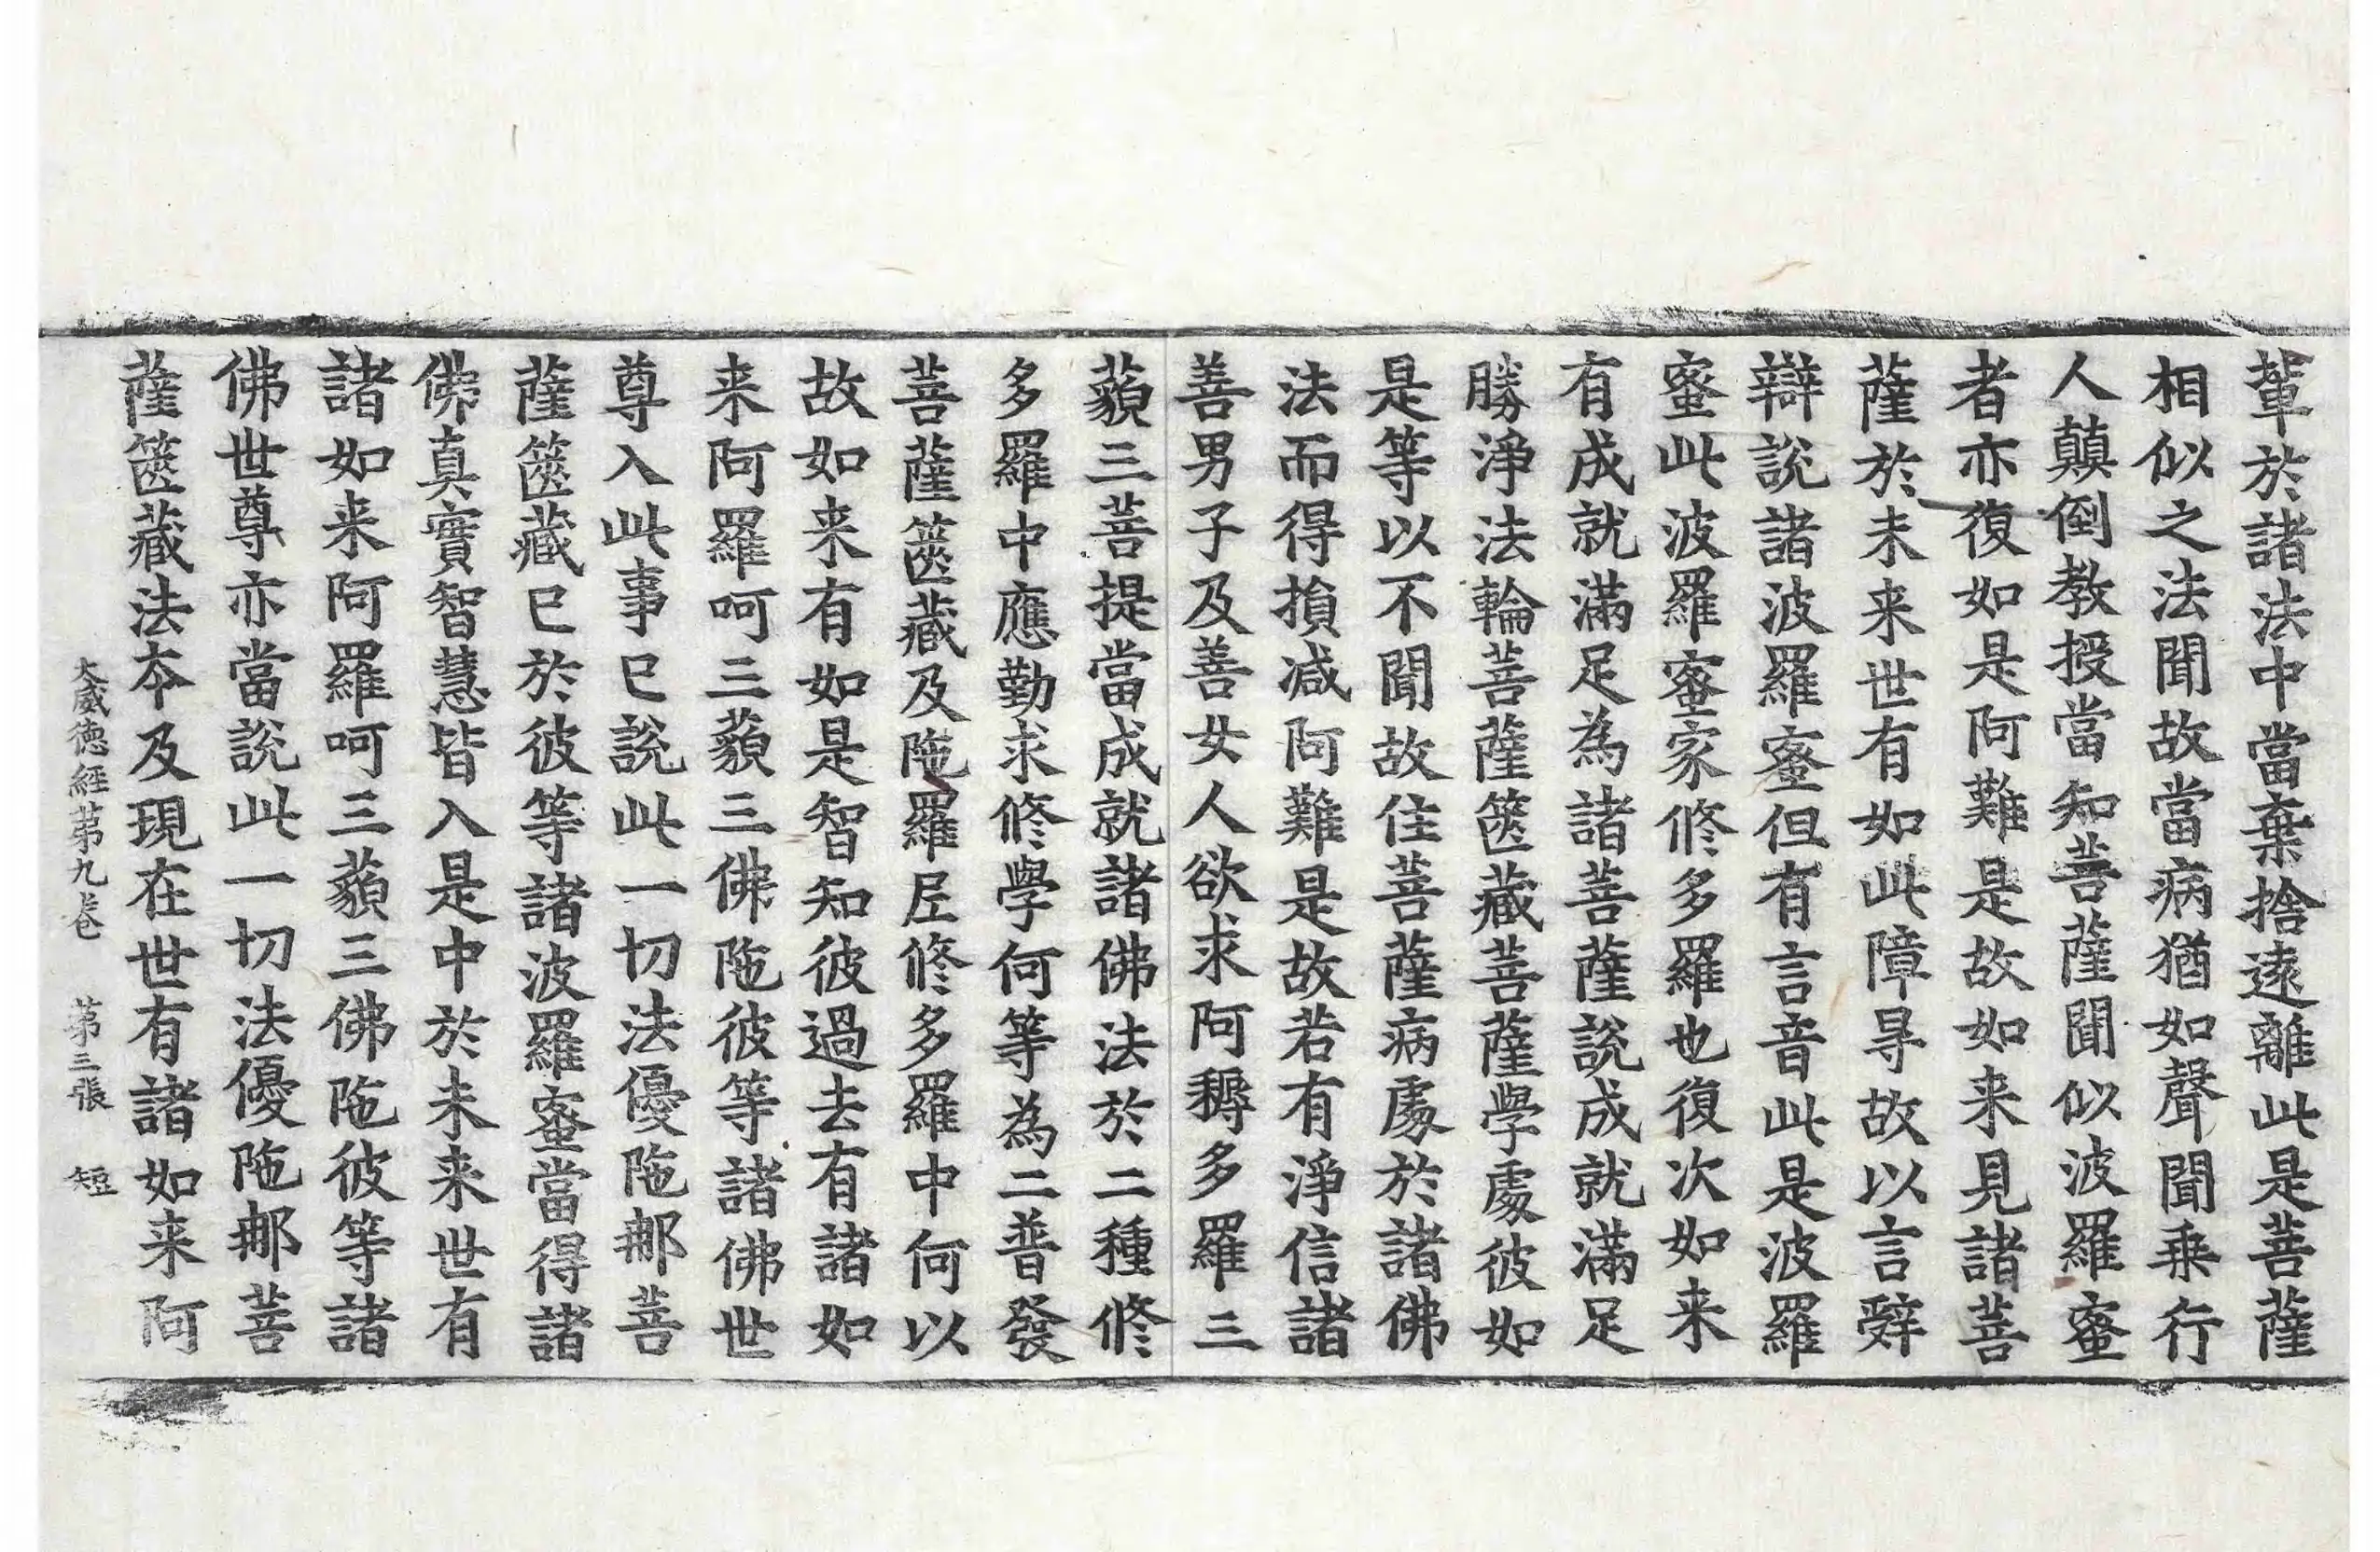 軰於諸法中當棄捨遠離此是菩薩
相似之法聞故當病猶如聲聞乗行
人顛倒教授當知菩薩聞似波羅蜜
者亦復如是阿難是故如来見諸菩
薩於未来世有如此障㝵故以言辤
辯說諸波羅蜜但有言音此是波羅
蜜此波羅蜜家修多羅也復次如来
有成就滿足為諸菩薩說成就滿足
勝淨法輪菩薩篋藏菩薩學處彼如
是等以不聞故住菩薩病處於諸佛
法而得損减阿難是故若有淨信諸
善男子及善女人欲求阿耨多羅三
藐三菩提當成就諸佛法於二種修
多羅中應勤求修學何等為二普發
菩薩篋藏及陁羅𡰱修多羅中何以
故如来有如是智知彼過去有諸如
来阿羅呵三藐三佛陁彼等諸佛世
尊入此事已說此一切法優陁那菩
薩篋藏已於彼等諸波羅蜜當得諸
佛真實智慧皆入是中於未来世有
諸如来阿羅呵三藐三佛陁彼等諸
佛世尊亦當說此一切法優陁那菩
薩篋藏法夲及現在世有諸如来阿
大威德經苐九卷 苐三張 短